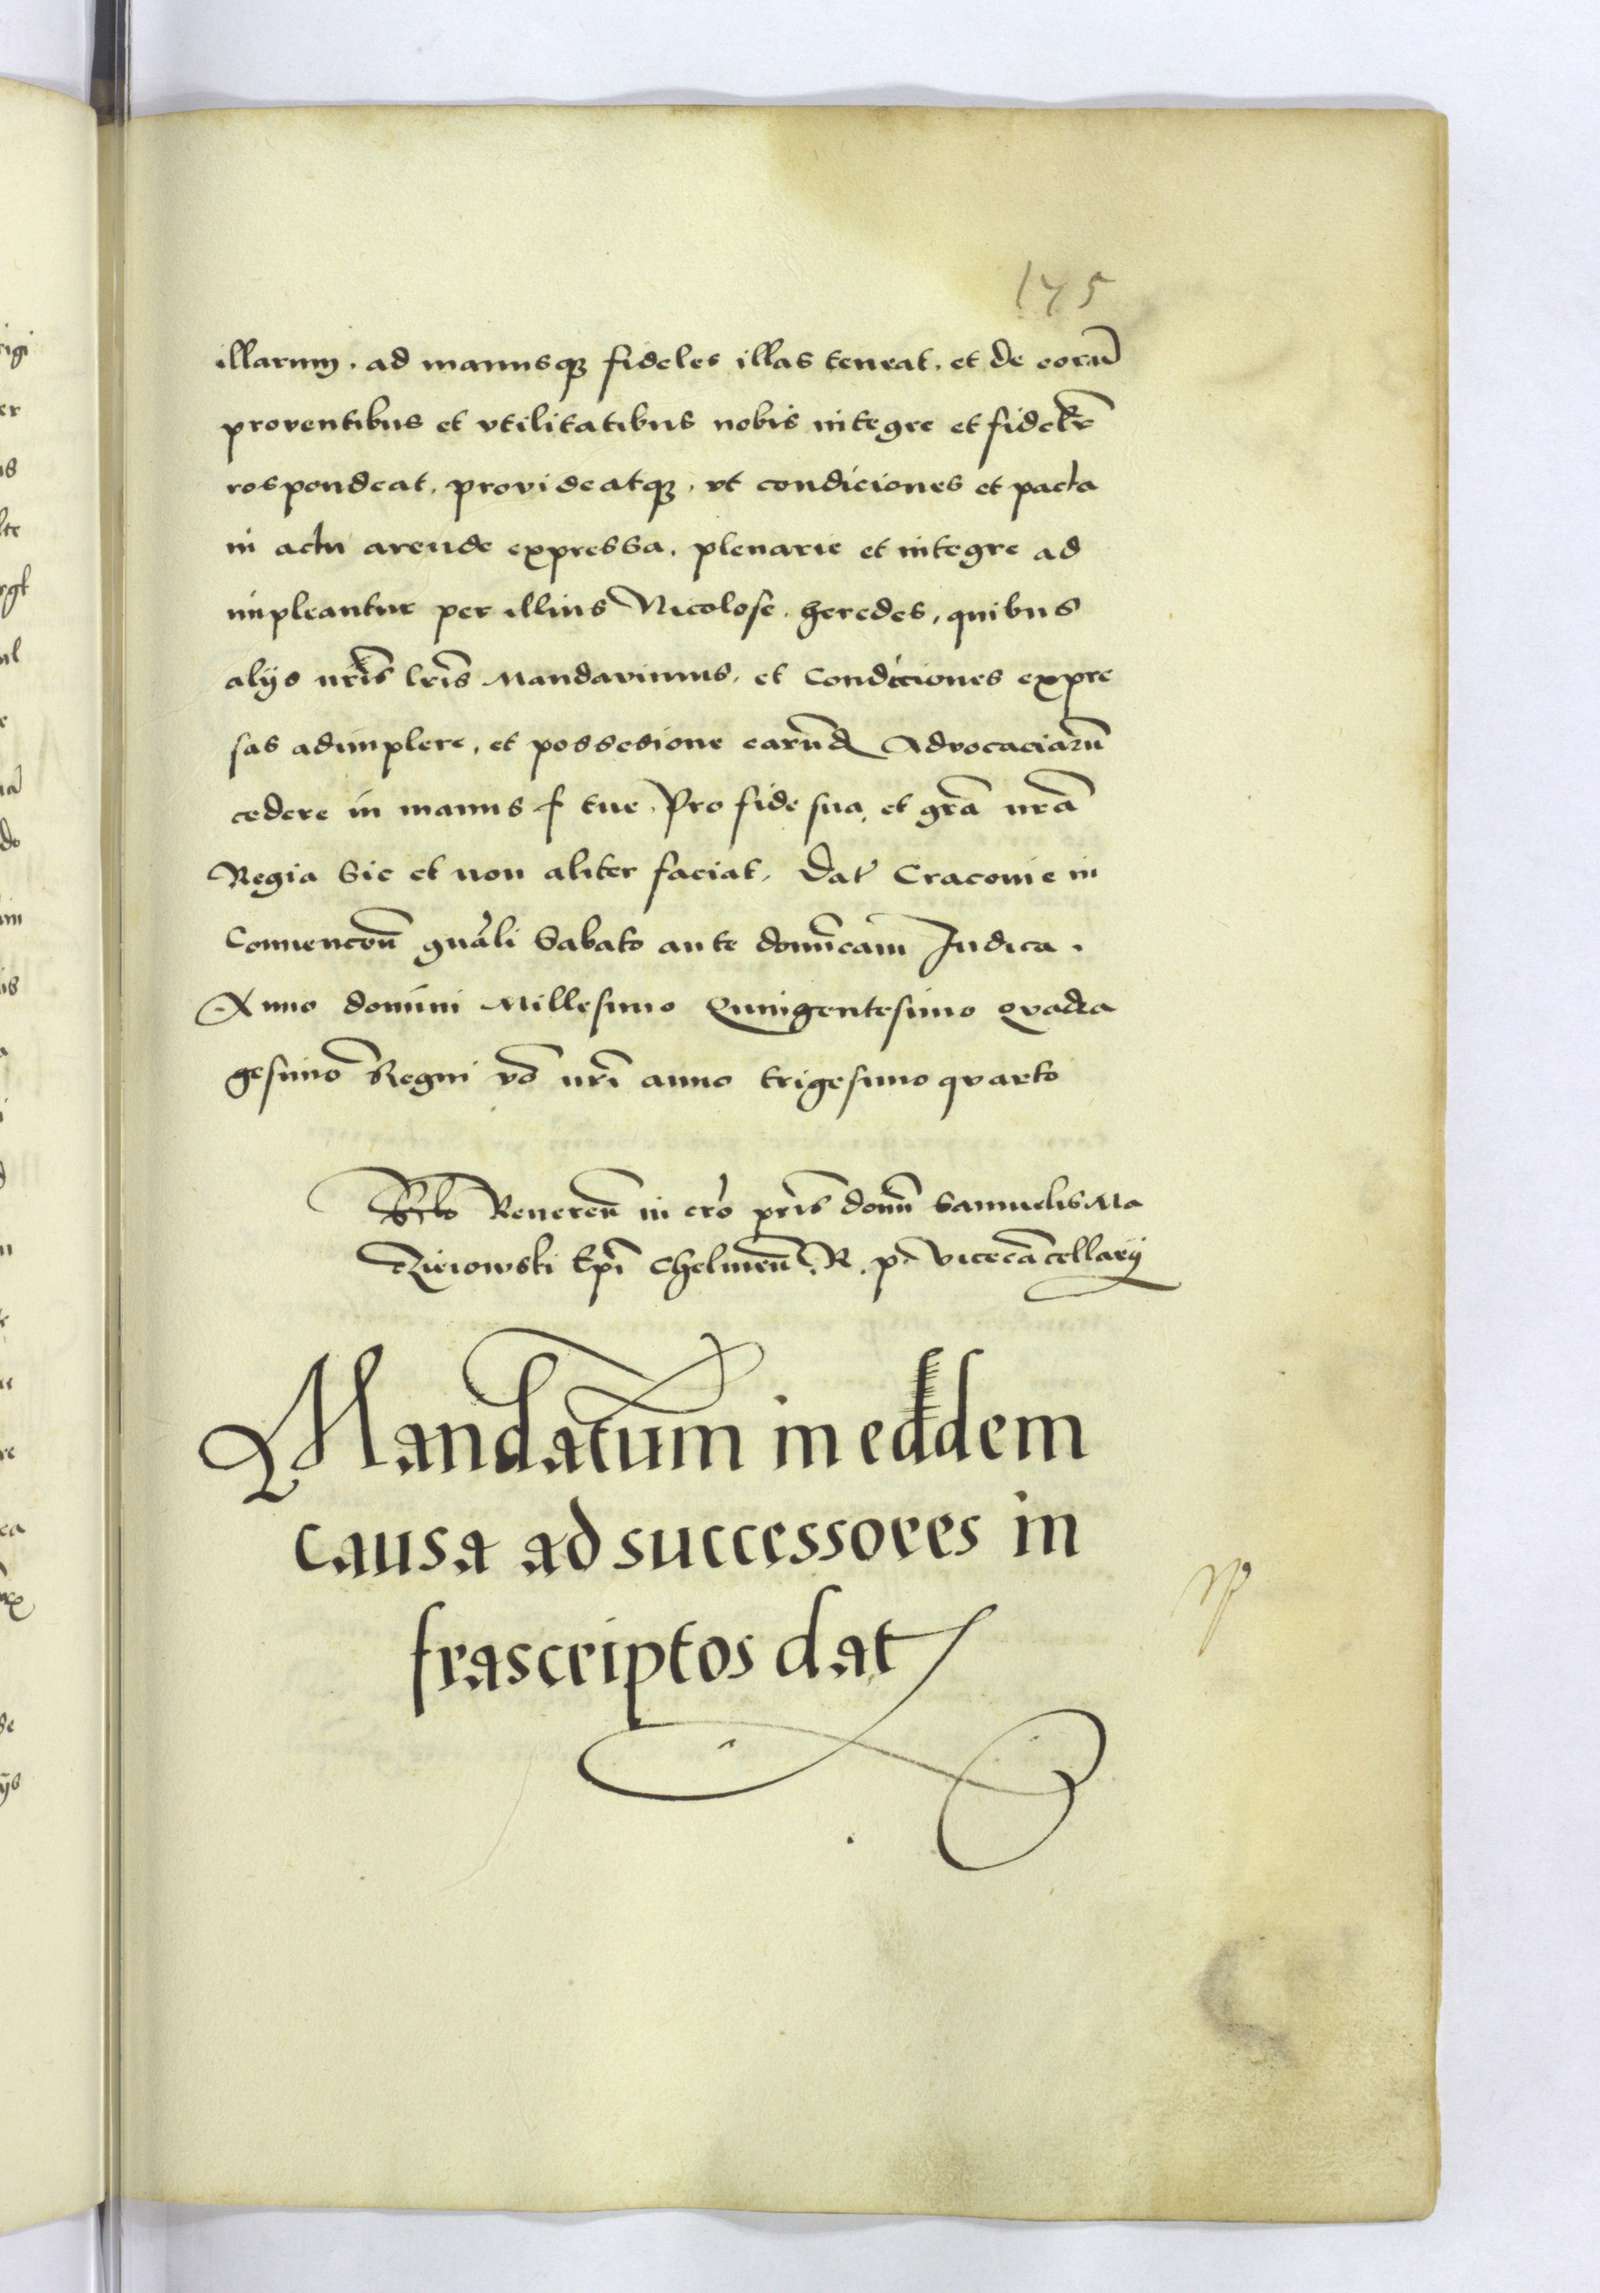 175
illarum. ad manusqꝫ fideles illas teneat. et de eorū
proventibus et vtilitatibus nobis integre et fidelr̄
respondeat. provideatqꝫ. vt condiciones et pacta
in actu arende expressa. plenarie et integre ad
impleantur per illius Nicolose. heredes, quibus
alijs nr̄is lr̄is Mandavimus. et Condiciones expre
sas adimplere, et possesione earūd Advocaciarū
cedere in manus f tue. Pro fide sua, et gr̄a nr̄a
Regia Sic et non aliter faciat. Dat Cracovie in
Conuencōn gn̄ali Sabato ante domīcam Judica.
Anno domini Millesimo Quingentesimo qvadra
gesimo Regni vō nr̄i anno trigesimo qvarto
Rlo Reuerēn in cr̄o pr̄is domn̄ Samuelis Ma
czieiowski Ep̄i Chelmēn. R. p. vicecācellarij
Mandatum in eadem
causa ad successores in
frascriptos dat